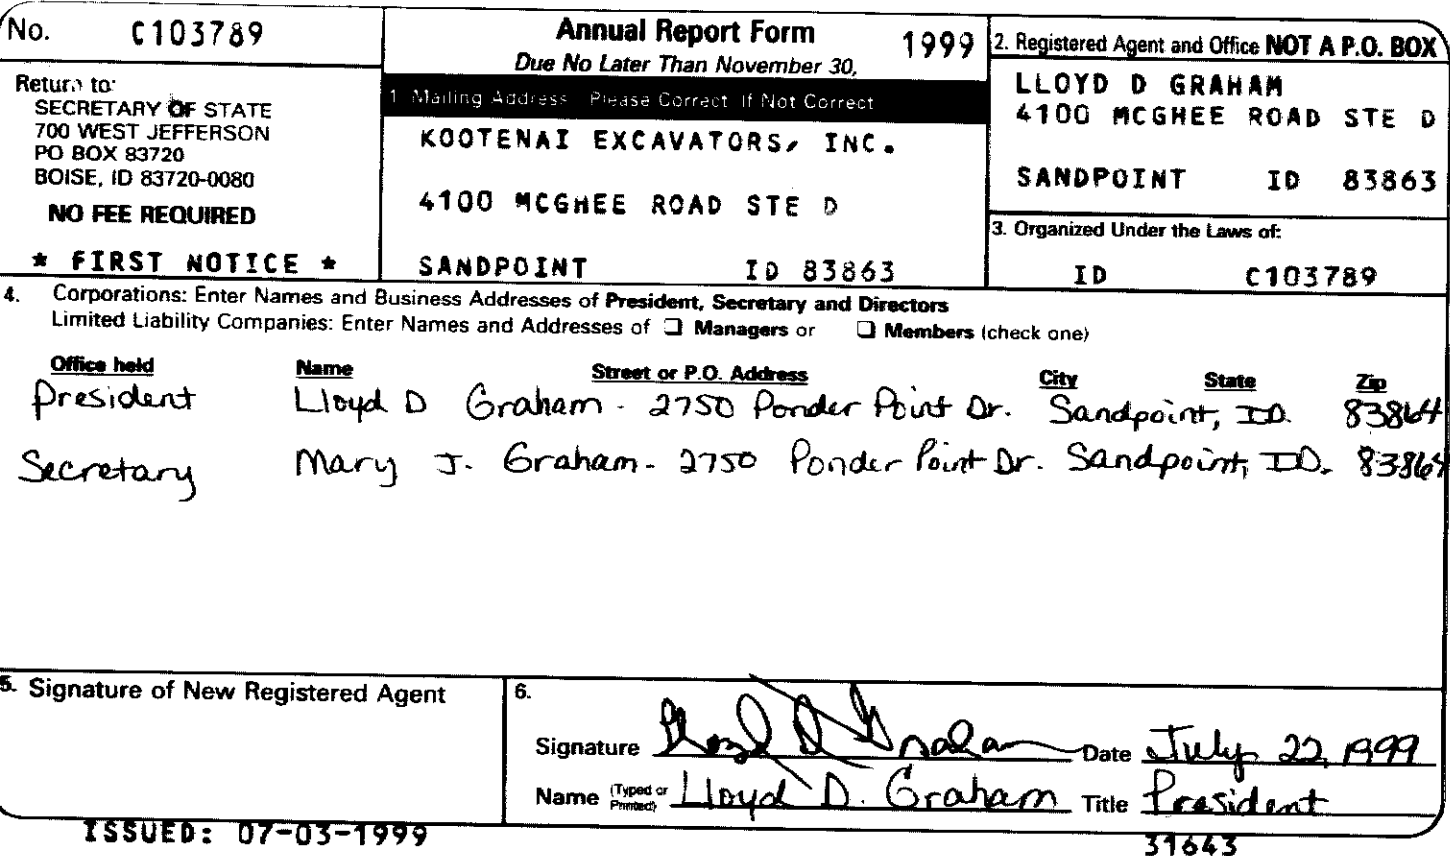 No. C103789
Return to:
SECRETARY OF STATE
700 WEST JEFFERSON
PO BOX 83720
BOISE, ID 83720-0080
NO FEE REQUIRED
* FIRST NOTICE *
Annual Report Form 1999
Due No Later Than November 30,
1. Mailing Address Please Correct If Not Correct
KOOTENAI EXCAVATORS, INC.
4100 MCGHEE ROAD STE D
SANDPOINT ID 83863
2. Registered Agent and Office NOT A P.O. BOX
LLOYD D GRAHAM
4100 MCGHEE ROAD STE D
SANDPOINT ID 83863
3. Organized Under the Laws of:
ID C103789
4. Corporations: Enter Names and Business Addresses of President, Secretary and Directors
Limited Liability Companies: Enter Names and Addresses of ❑ Managers or ❑ Members (check one)
Office held Name Street or P.O. Address City State Zip
President Lloyd D Graham - 2750 Ponder Point Dr. Sandpoint, ID. 83864
Secretary Mary J. Graham - 2750 Ponder Point Dr. Sandpoint, ID. 83864
5. Signature of New Registered Agent
6.
Signature Lloyd D Graham Date July 22, 1999
Name (Typed or Printed) Lloyd D. Graham Title President
ISSUED: 07-03-1999
31643